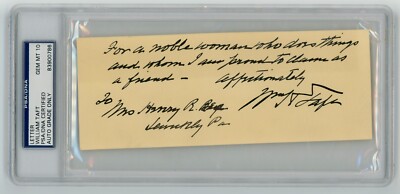 For a noble woman who does things
and whom I am proud to claim as
a friend — affectionately
To Wm H Taft
Mrs Henry R.
Sewickly Pa
PSA/DNA
LETTER
WILLIAM TAFT
PSA/DNA CERTIFIED
AUTO GRADE ONLY
GEM MT 10
83900788